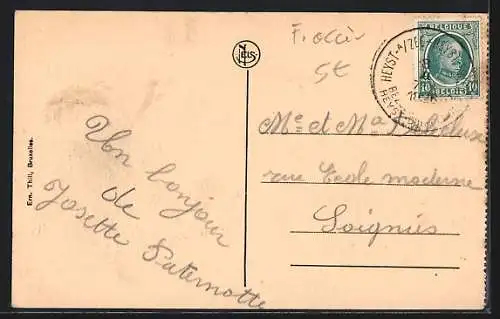 Un bonjour
de
Josette Paternotte
Ern. Thill, Bruxelles.
NELS
5t
HEYST-A/ZEE
BELGIQUE
10 10
BELGIE
Me et Ma
rue Ecole moderne
Soignies